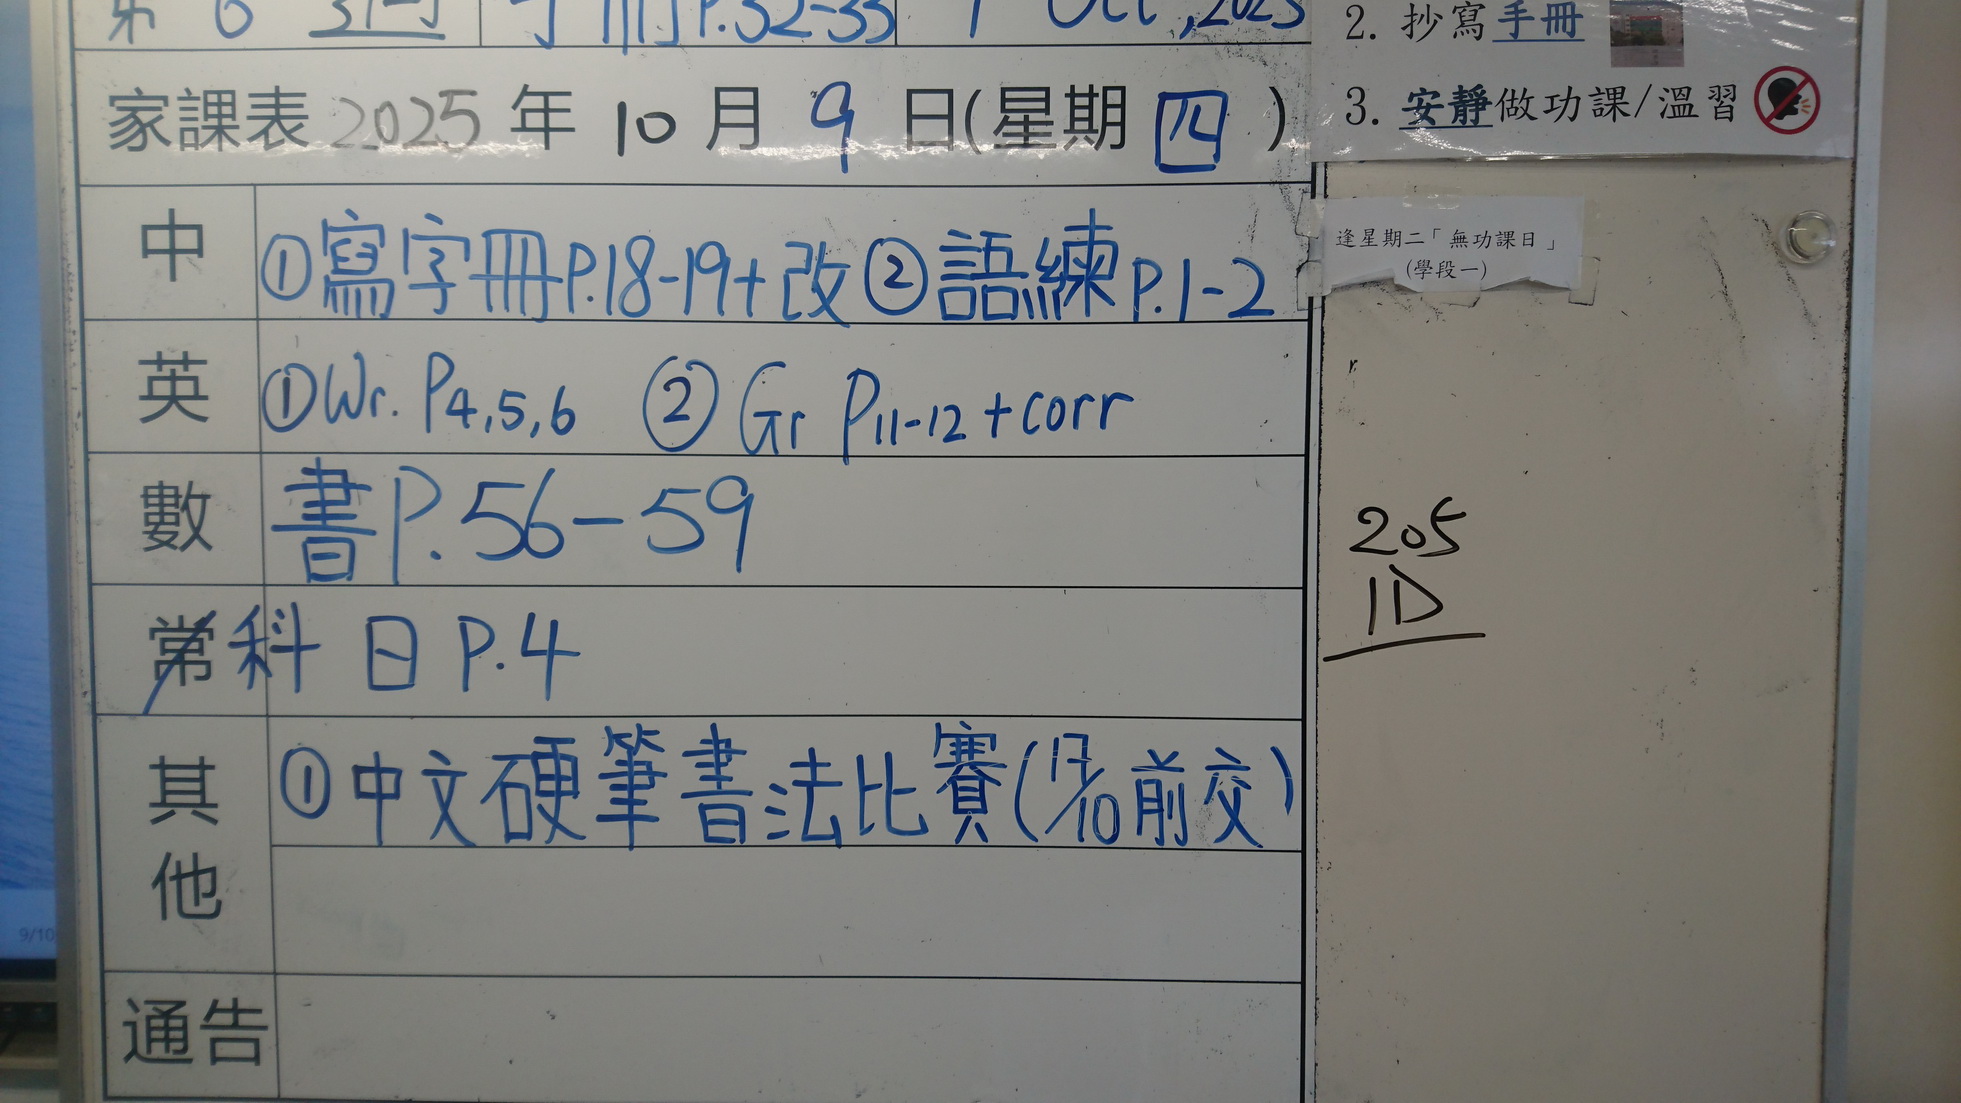 第 6 週 手冊P.32-33 Oct, 2025
家課表 2025 年 10 月 9 日(星期 四 )
中 ①寫字冊P.18-19+改 ②語練P.1-2
英 ①Wr. P4,5,6 ② Gr P11-12 +corr
數 書P.56-59
常 科 日 P.4
其他 ①中文硬筆書法比賽(17/10前交)
通告
2. 抄寫手冊
3. 安靜做功課/溫習
逢星期二「無功課日」
(學段一)
205
1D
9/10